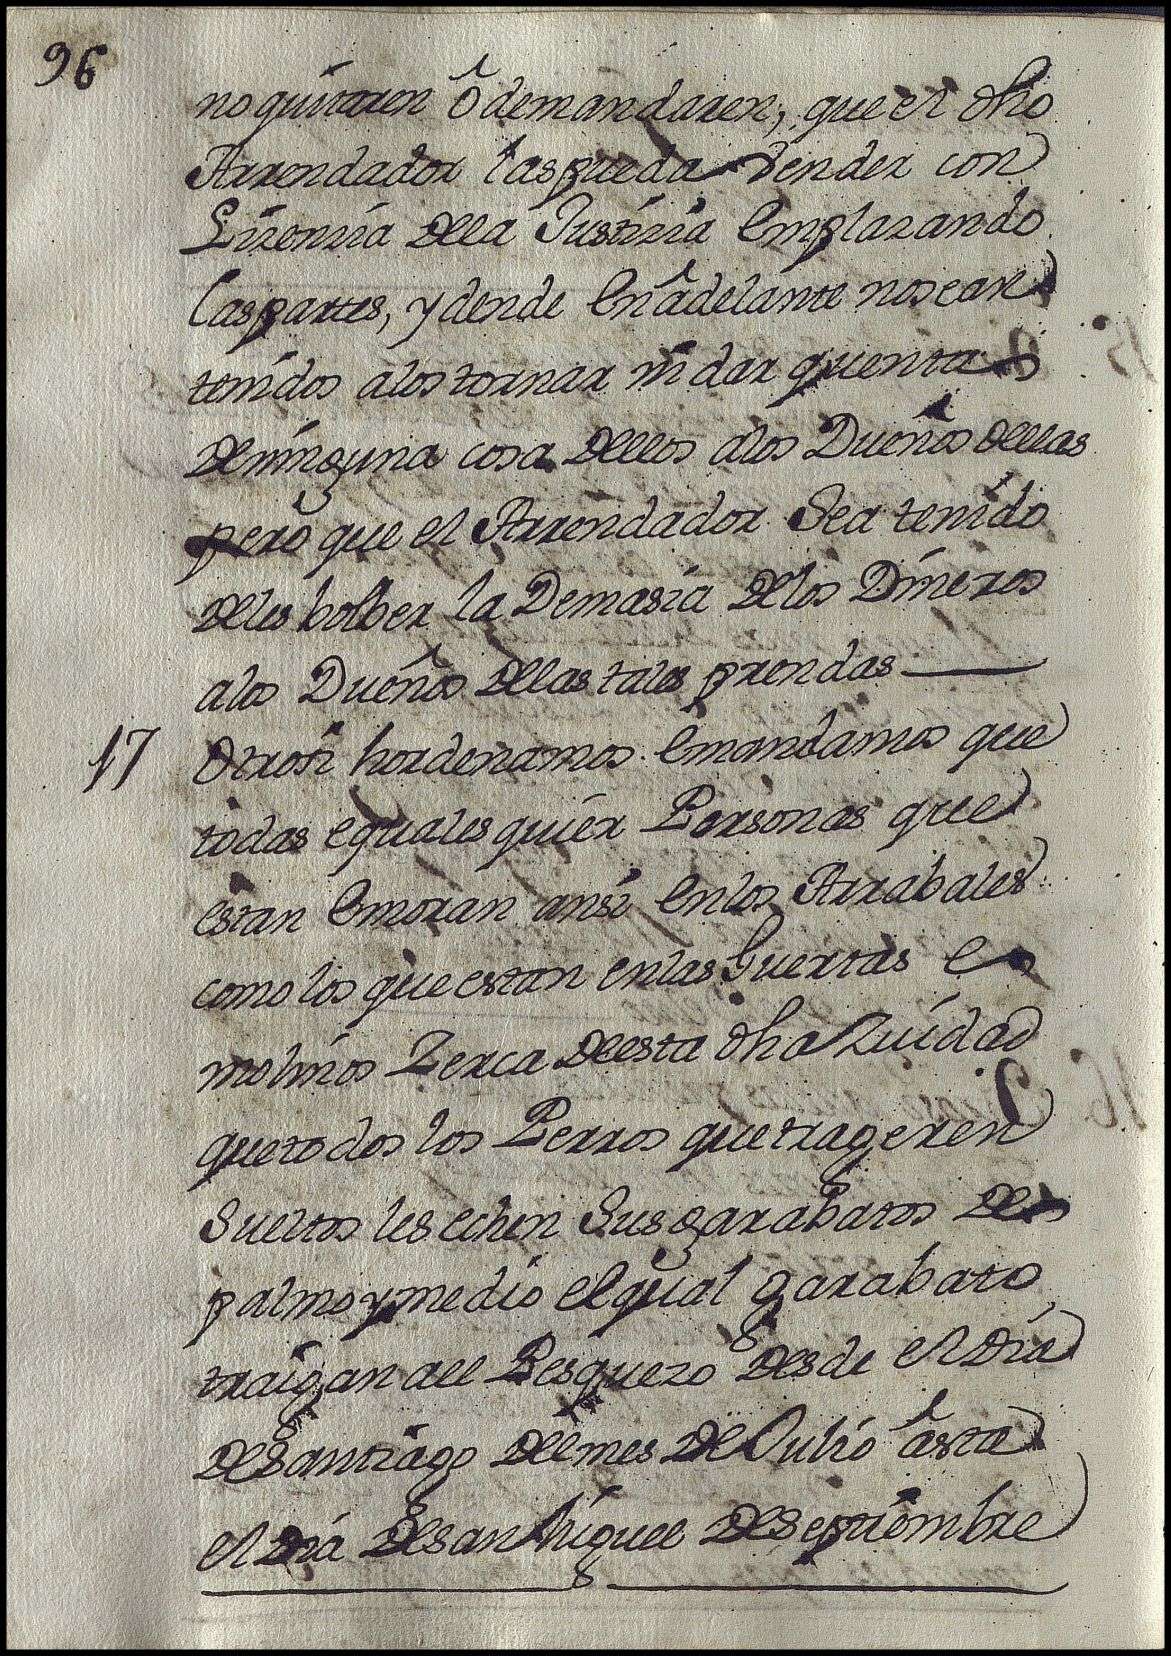 96
no quitaren ô demandaren, que el dho
Arrendador las pueda vender con
Lizenzia della Justizia emplazando
las partes, y dende en âdelante no sean
tenidos a los tornar ni dar quenta
de ninguna cosa dellos alos Dueños dellas
pero que el Arrendador sea tenido
deles bolber la Demasia delos Dineros
alos Dueños dellas tales prendas
17 Otrosi hordenamos e mandamos que
todas e quales quier Personas que
estan e moran ansi en los Arrabales
como los que estan en las huertas e
molinos Zerca de esta dha Ziudad
que todos los Perros que trageren
sueltos les echen sus garabatos de
palmo y medio el qual garabato
traigan al Pesquezo desde el dia
de Santiago del mes de Julio âsta
el dia de san Miguel de Septiembre